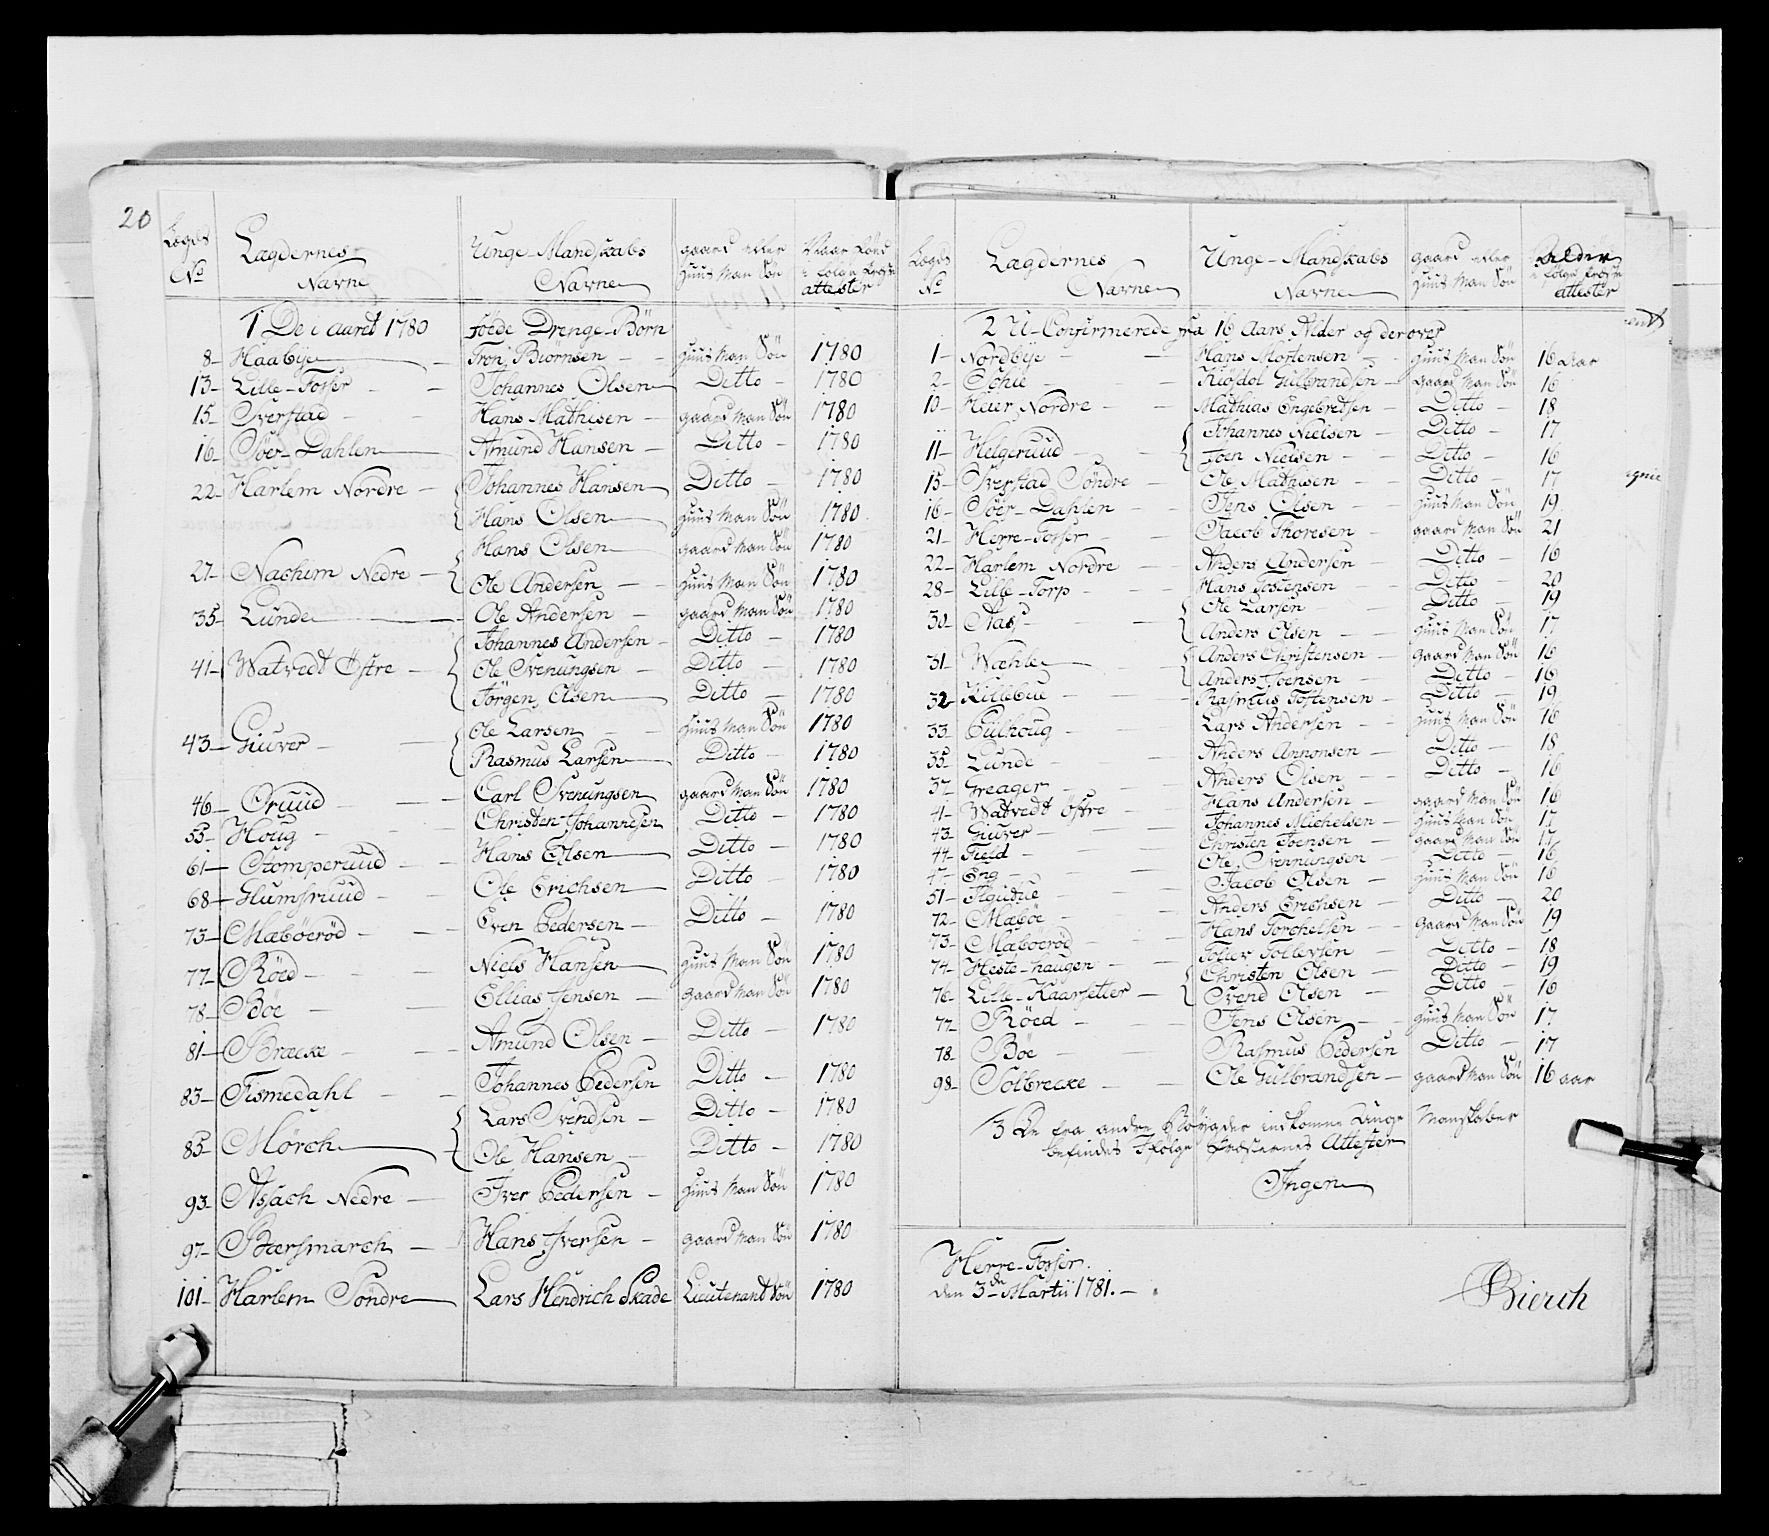 20
Lægds No | Lægdernes Navne | Unge Mandskabs Navne | gaard eller Huus Man Søn | Naar Fød i følge Præste attester
1 De i aaret 1780 Foede Drenge-Børn
8 Haabye | Tron Biørnsen | Huus Man Søn | 1780
13 Lille-Fosser | Johannes Olsen | Ditto | 1780
15 Sverstad | Hans Mathisen | gaard Man Søn | 1780
16 Söer-Dahlen | Amund Hansen | Ditto | 1780
22 Harlem Nordre | Johannes Hansen | Ditto | 1780
Hans Olsen | Huus Man Søn | 1780
27 Nachim Nedre | Hans Olsen | gaard Man Søn | 1780
Ole Andersen | Huus Man Søn | 1780
35 Lunde | Ole Andersen | gaard Man Søn | 1780
41 Watvedt Östre | Johannes Andersen | Ditto | 1780
Ole Svenungsen | Ditto | 1780
Jörgen Olsen | Ditto | 1780
43 Giuver | Ole Larsen | Huus Man Søn | 1780
Rasmus Larsen | Ditto | 1780
46 Gruud | Carl Svenungsen | gaard Man Søn | 1780
55 Houg | Christen Johannesen | Ditto | 1780
61 Stomperuud | Hans Olsen | Ditto | 1780
68 Glumsruud | Ole Erichsen | Ditto | 1780
73 Mæböeröd | Even Pedersen | Ditto | 1780
77 Röed | Niels Hansen | Huus Man Søn | 1780
78 Böe | Ellias Jensen | gaard Man Søn | 1780
81 Bræcke | Amund Olsen | Ditto | 1780
83 Tismedahl | Johannes Pedersen | Ditto | 1780
85 Mörch | Lars Svendsen | Ditto | 1780
Ole Hansen | Ditto | 1780
93 Assach Nedre | Iver Pedersen | Huus Man Søn | 1780
97 Bærsmarch | Hans Iversen | gaard Man Søn | 1780
101 Harlem Söndre | Lars Hendrich Skade | Lieutenant Søn | 1780
Lægds No | Lægdernes Navne | Unge-Mandskabs Navne | gaard eller Huus Man Søn | Alder i følge Præste attester
2 U-Confirmerede fra 16 Aars Alder og derover
1 Nordbye | Hans Mortensen | Huus Man Søn | 16 Aar
2 Sohie | Kiöstol Gulbrandsen | gaard Man Søn | 16
10 Heier Nordre | Mathias Engebretsen | Ditto | 18
11 Helgeruud | Johannes Nielsen | Ditto | 17
Joen Nielsen | Ditto | 16
15 Sverstad Söndre | Ole Mathisen | Ditto | 17
16 Söer-Dahlen | Jens Olsen | Huus Man Søn | 19
21 Herre-Fosser | Jacob Thoresen | gaard Man Søn | 21
22 Harlem Nordre | Anders Andersen | Ditto | 16
28 Lille-Torp | Hans Jostensen | Ditto | 20
30 Aas | Ole Larsen | Ditto | 19
Anders Olsen | Huus Man Søn | 17
31 Wahle | Anders Christensen | gaard Man Søn | 16
Anders Joensen | Ditto | 16
32 Killebue | Rasmus Tostensen | Ditto | 19
33 Gulhoug | Lars Andersen | Huus Man Søn | 16
35 Lunde | Anders Annonsen | Ditto | 18
37 Greager | Anders Olsen | Ditto | 16
41 Watvedt Östre | Hans Andersen | gaard Man Søn | 16
43 Giuver | Johannes Michelsen | Huus Man Søn | 17
44 Field | Christen Joensen | gaard Man Søn | 17
47 Eng | Ole Svennungsen | Ditto | 16
51 | Jacob Olsen | Huus Man Søn | 16
72 Mæböe | Anders Erichsen | Ditto | 20
73 Mæböeröd | Hans Torchelsen | gaard Man Søn | 19
74 Heste-haugen | Tollev Tollevsen | Ditto | 18
76 Lille-Kaarsetter | Christen Olsen | Ditto | 19
Svend Olsen | Ditto | 16
77 Röed | Jens Olsen | Huus Man Søn | 17
78 Böe | Rasmus Pedersen | Ditto | 17
98 Solbrecke | Ole Gulbrandsen | gaard Man Søn | 16 aar
3 De fra andre indkomne Unge Manskaber
befindes Ifølge Præsternes Attester
Ingen
Herre-Fosser
den 3de Martii 1781.
Bierch